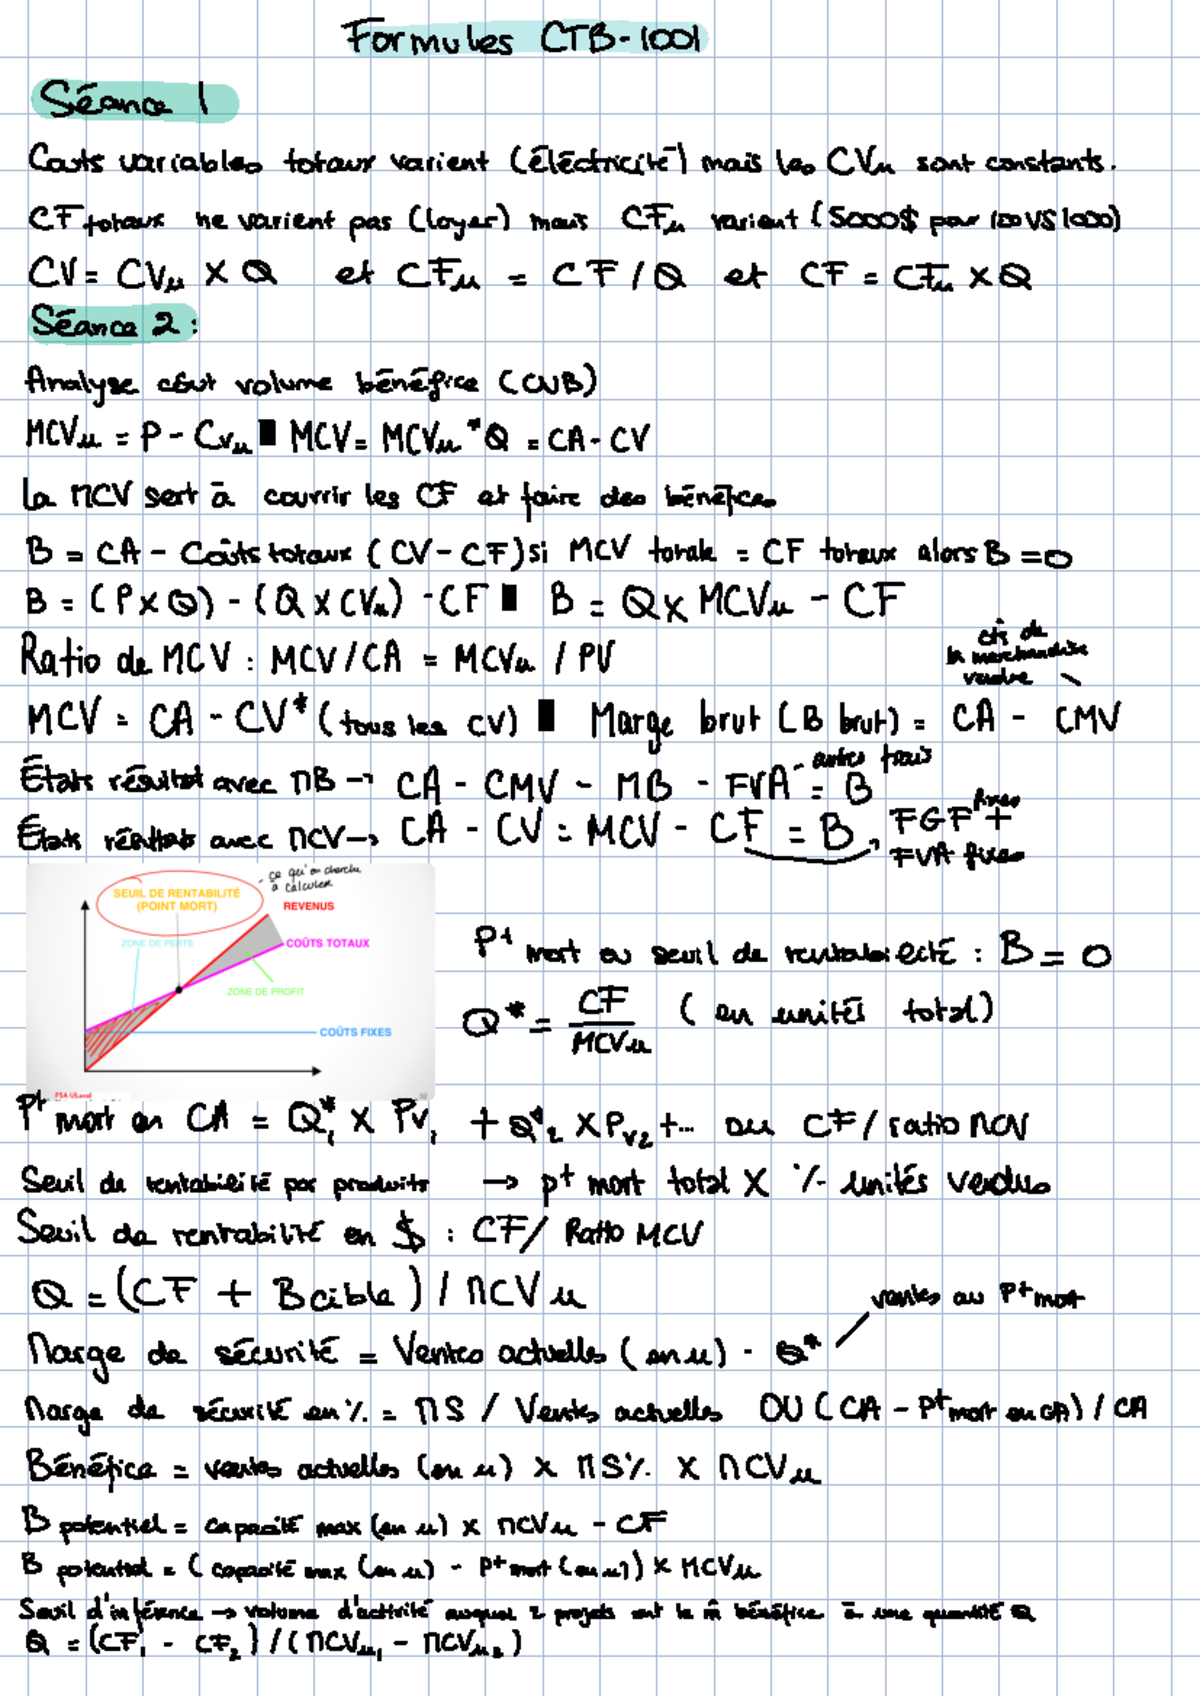 Formules CTB-1001
Séance 1
Couts variables totaux varient (éléctricité) mais les CVu sont constants.
CF totaux ne varient pas (loyer) mais CFu varient (5000$ pour 100 VS 1000)
CV = CVu X Q et CFu = CF / Q et CF = CFu X Q
Séance 2 :
Analyse coût volume bénéfice (CVB)
MCVu = P - Cvu ▮ MCV = MCVu * Q = CA - CV
La MCV sert à couvrir les CF et faire des bénéfices
B = CA - Coûts totaux (CV - CF) si MCV totale = CF totaux alors B = 0
B = (P X Q) - (Q X CVu) - CF ▮ B = Q X MCVu - CF
Ratio de MCV : MCV / CA = MCVu / PV
cts de
la marchandise
vendue
MCV = CA - CV* (tous les CV) ▮ Marge brut (B brut) = CA - CMV
États résultat avec MB → CA - CMV - MB - FVA = B
- autres frais
États résultats avec MCV → CA - CV = MCV - CF = B, FGF fixes +
FVA fixes
- ce qu'on cherche
à calculer
SEUIL DE RENTABILITÉ
(POINT MORT)
REVENUS
ZONE DE PERTE
COÛTS TOTAUX
ZONE DE PROFIT
COÛTS FIXES
FSA ULaval
Pt mort ou seuil de rentabilité : B = 0
Q* = CF / MCVu (en unités total)
Pt mort en CA = Q*1 X Pv1 + Q*2 X Pv2 + ... ou CF / ratio MCV
Seuil de rentabilité par produits → pt mort total X % unités vendus
Seuil de rentabilité en $ : CF / Ratio MCV
Q = (CF + B cible) / MCVu
ventes au Pt mort
Marge de sécurité = Ventes actuelles (en u) - Q*
Marge de sécurité en % = MS / Ventes actuelles OU (CA - Pt mort en CA) / CA
Bénéfice = ventes actuelles (en u) X MS% X MCVu
B potentiel = capacité max (en u) x MCVu - CF
B potentiel = (capacité max (en u) - Pt mort (en u)) x MCVu
Seuil d'inférence → volume d'activité auquel 2 projets ont le m̂ bénéfice à une quantité Q
Q = (CF1 - CF2) / (MCVu1 - MCVu2)